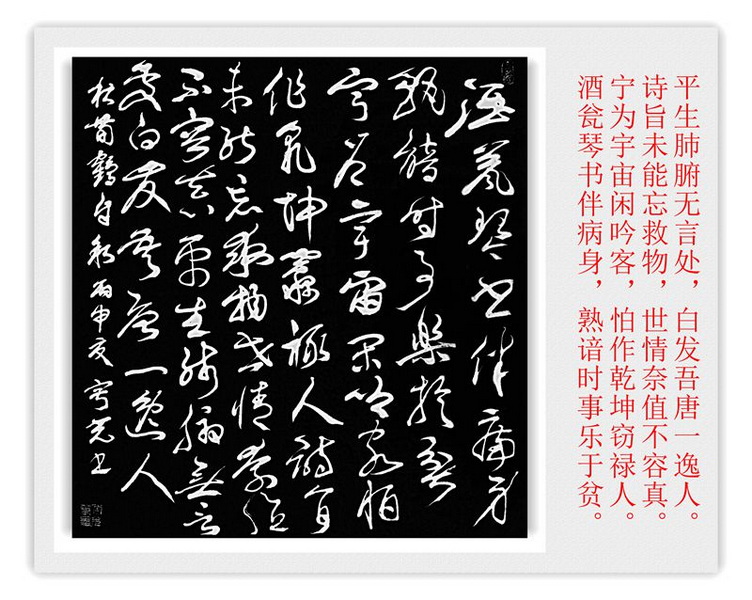 酒瓮琴书伴病身
熟諳时事樂於貧
宁为宇宙闲吟客怕
作乾坤竊禄人詩旨
未能忘救物世情奈值
不容真平生肺腑無言
處白发吾唐一逸人
杜荀鶴自叙丙申夏书
酒瓮琴书伴病身，熟谙时事乐于贫。
宁为宇宙闲吟客，怕作乾坤窃禄人。
诗旨未能忘救物，世情奈值不容真。
平生肺腑无言处，白发吾唐一逸人。